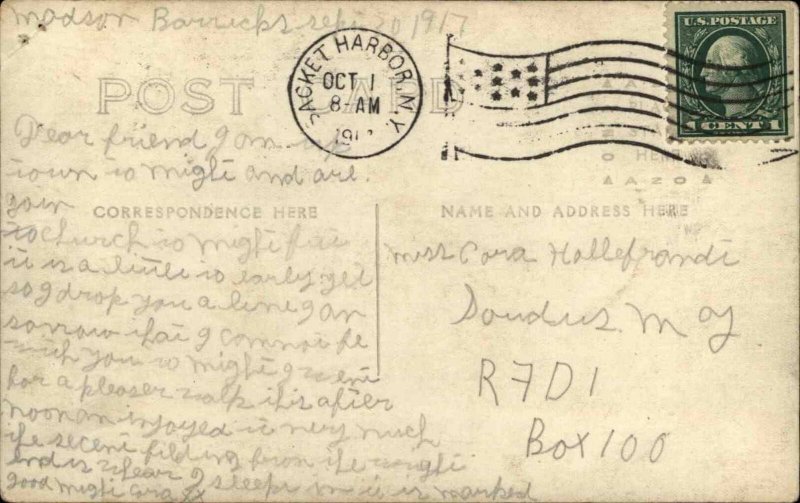 Madson Barricks Sept 30 1917
POST CARD
SACKET HARBOR, N.Y.
OCT 1
8-AM
191
U.S. POSTAGE
1 CENT 1
Dear friend I am up
town to night and are
goin
to church to night but
it is a little to early yet
so I drop you a line I am
sorrow that I cannot be
with you to night I went
for a pleaser walk this after
noon an injoyed it very much
the secent bilding from the right
end is where I sleep in it is marked
good night Cora
CORRESPONDENCE HERE
NAME AND ADDRESS HERE
PLACE
STAMP
HERE
AZO
Miss Cora Hallefrandt
Doudus. M y
R7D1
Box 100